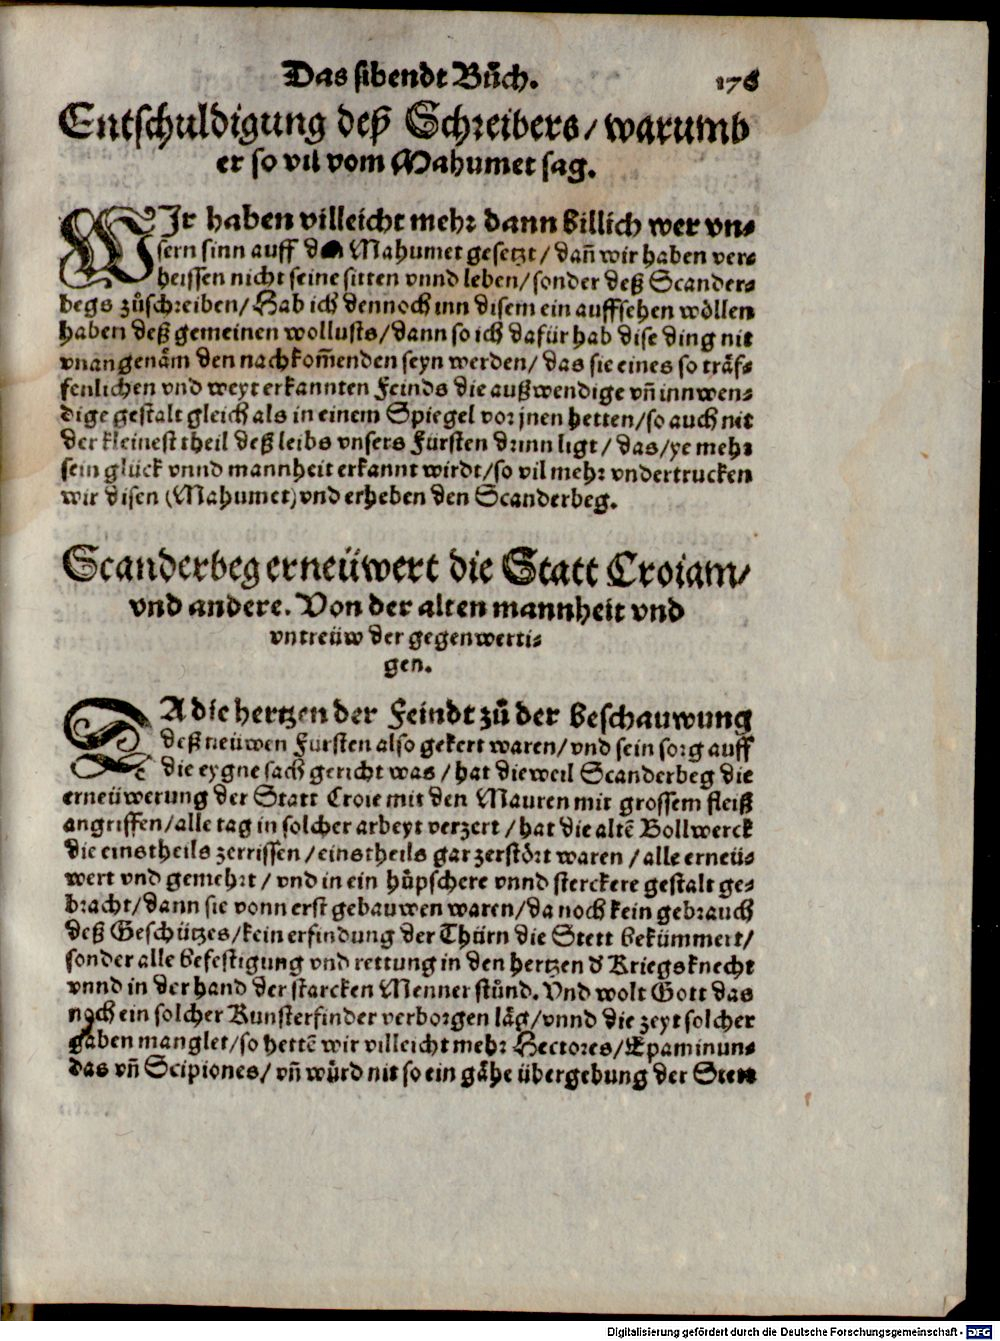 Das sibendt Bůch. 176
Entschuldigung deß Schreibers / warumb
er so vil vom Mahumet sag.
WIr haben villeicht mehr dann billich wer vn-
sern sinn auff Mahumet gesetzt / dañ wir haben ver-
heissen nicht seine sitten vnnd leben / sonder deß Scander-
begs zůschreiben / Hab ich dennoch inn disem ein auffsehen wöllen
haben deß gemeinen wollusts / dann so ich dafür hab dise ding nit
vnangenäm den nachkom̃enden seyn werden / das sie eines so träf-
fenlichen vnd weyt erkannten Feinds die außwendige vñ innwen-
dige gestalt gleich als in einem Spiegel vor jnen hetten / so auch nit
der kleinest theil deß leibs vnsers Fürsten drinn ligt / das / ye mehr
sein glück vnnd mannheit erkannt wirdt / so vil mehr vndertrucken
wir disen (Mahumet) vnd erheben den Scanderbeg.
Scanderbeg erneüwert die Statt Croiam /
vnd andere. Von der alten mannheit vnd
vntreüw der gegenwerti-
gen.
DA die hertzen der Feindt zů der beschauwung
deß neüwen Fürsten also gekert waren / vnd sein sorg auff
die eygne sach gericht was / hat dieweil Scanderbeg die
erneüwerung der Statt Croie mit den Mauren mit grossem fleiß
angriffen / alle tag in solcher arbeyt verzert / hat die altẽ Bollwerck
die einstheils zerrissen / einstheils gar zerstört waren / alle erneü-
wert vnd gemehrt / vnd in ein hüpschere vnnd sterckere gestalt ge-
bracht / dann sie vonn erst gebauwen waren / da noch kein gebrauch
deß Geschützes / kein erfindung der Thürn die Stett bekümmert /
sonder alle befestigung vnd rettung in den hertzen d' Kriegsknecht
vnnd in der hand der starcken Menner stůnd. Vnd wolt Gott das
noch ein solcher Kunsterfinder verborgen läg / vnnd die zeyt solcher
gaben manglet / so hettẽ wir villeicht mehr Hectores / Epaminun-
das vñ Scipiones / vñ würd nit so ein gähe übergebung der Stett
Digitalisierung gefördert durch die Deutsche Forschungsgemeinschaft - DFG